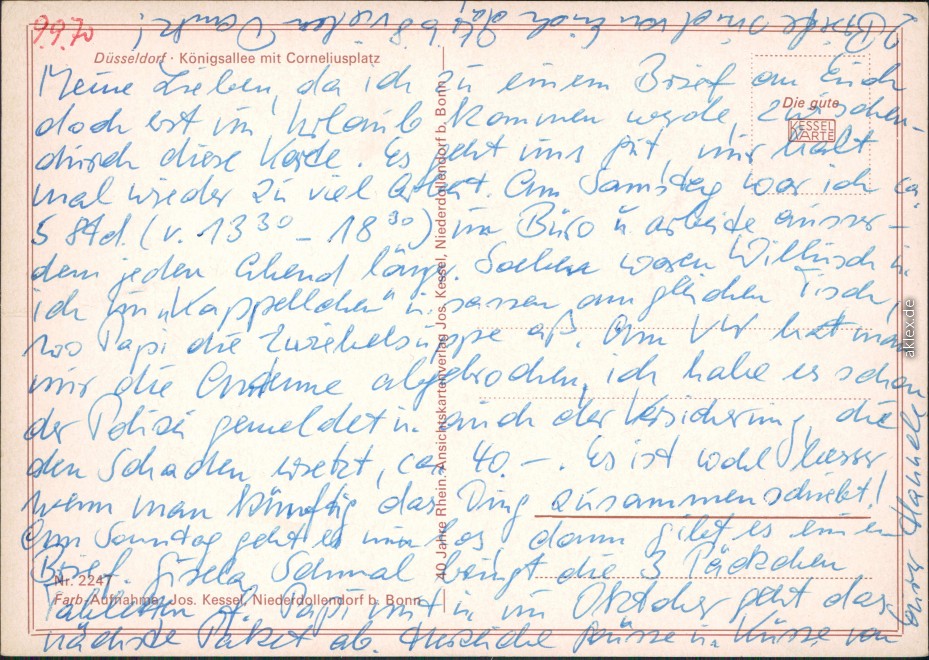 9.9.70
2 Briefe sind von Euch da, vielen Dank!
Düsseldorf · Königsallee mit Corneliusplatz
Die gute
KESSEL
KARTE
Meine Lieben, da ich zu einem Brief an Euch
doch erst im Urlaub kommen werde zwischen-
durch diese Karte. Es geht uns gut, nur halt
mal wieder zu viel Arbeit. Am Samstag war ich ca
5 Std. (v. 13 30 – 18 30) im Büro u. arbeite ausser-
dem jeden Abend länger. waren in
ich im "Kappellchen" u. sassen am gleichen Tisch,
wo Papi die Zwiebelsuppe aß. Am VW hat man
mir die Antenne abgebrochen, ich habe es schon
der Polizei gemeldet u. auch der Versicherung, die
den Schaden ersetzt, ca 40.–. Es ist wohl besser
wenn man künftig das Ding zusammenschiebt!
Am Sonntag geht es nun los, dann gibt es einen
Brief. Gisela Schmal bringt die 3 Päckchen
Tabletten f. Papi mit u. im Oktober geht das
nächste Paket ab. Herzliche Grüsse u. Küsse von
Eurer Hannele
40 Jahre Rhein. Ansichtskartenverlag Jos. Kessel, Niederdollendorf b. Bonn
Nr. 224
Farb-Aufnahme: Jos. Kessel, Niederdollendorf b. Bonn
aklex.de